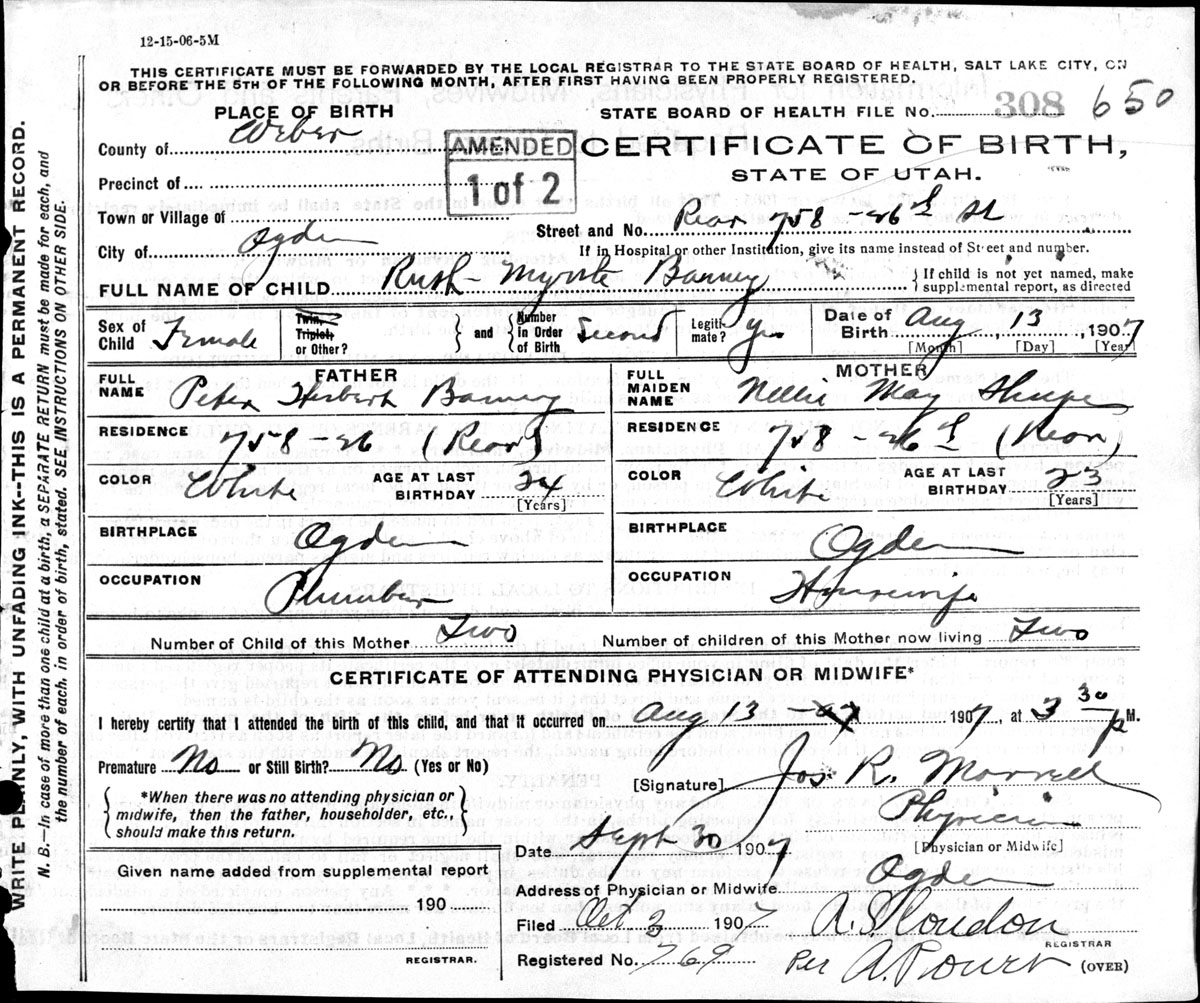 12-15-06-5M
THIS CERTIFICATE MUST BE FORWARDED BY THE LOCAL REGISTRAR TO THE STATE BOARD OF HEALTH, SALT LAKE CITY, ON
OR BEFORE THE 5TH OF THE FOLLOWING MONTH, AFTER FIRST HAVING BEEN PROPERLY REGISTERED.
PLACE OF BIRTH
STATE BOARD OF HEALTH FILE No. 308 650
County of Weber
AMENDED
1 of 2
CERTIFICATE OF BIRTH,
STATE OF UTAH.
Precinct of
Town or Village of
Street and No. Rear 758-26th St
City of Ogden
If in Hospital or other Institution, give its name instead of Street and number.
FULL NAME OF CHILD Ruth Myrtle Barney
{ If child is not yet named, make supplemental report, as directed
Sex of Child Female
Twin, Triplet or Other? } and { Number in Order of Birth Second
Legitimate? Yes
Date of Birth Aug 13, 1907
[Month] [Day] [Year]
FATHER
FULL NAME Peter Herbert Barney
RESIDENCE 758-26 (Rear)
COLOR White AGE AT LAST BIRTHDAY 24
[Years]
BIRTHPLACE Ogden
OCCUPATION Plumber
MOTHER
FULL MAIDEN NAME Nellie May
RESIDENCE 758-26th (Rear)
COLOR White AGE AT LAST BIRTHDAY 23
[Years]
BIRTHPLACE Ogden
OCCUPATION Housewife
Number of Child of this Mother Two Number of children of this Mother now living Two
CERTIFICATE OF ATTENDING PHYSICIAN OR MIDWIFE*
I hereby certify that I attended the birth of this child, and that it occurred on Aug 13 1907, at 3 30 P M.
Premature No or Still Birth? No (Yes or No)
[Signature] Jos. R. Morrell
{ *When there was no attending physician or midwife, then the father, householder, etc., should make this return. }
Physician
[Physician or Midwife]
Date Sept 30 1907
Given name added from supplemental report
190
REGISTRAR.
Address of Physician or Midwife Ogden
Filed Oct 3 1907
REGISTRAR
Registered No. 769
Per
(OVER)
WRITE PLAINLY, WITH UNFADING INK--THIS IS A PERMANENT RECORD.
N. B.--In case of more than one child at a birth, a SEPARATE RETURN must be made for each, and
the number of each, in order of birth, stated. SEE INSTRUCTIONS ON OTHER SIDE.